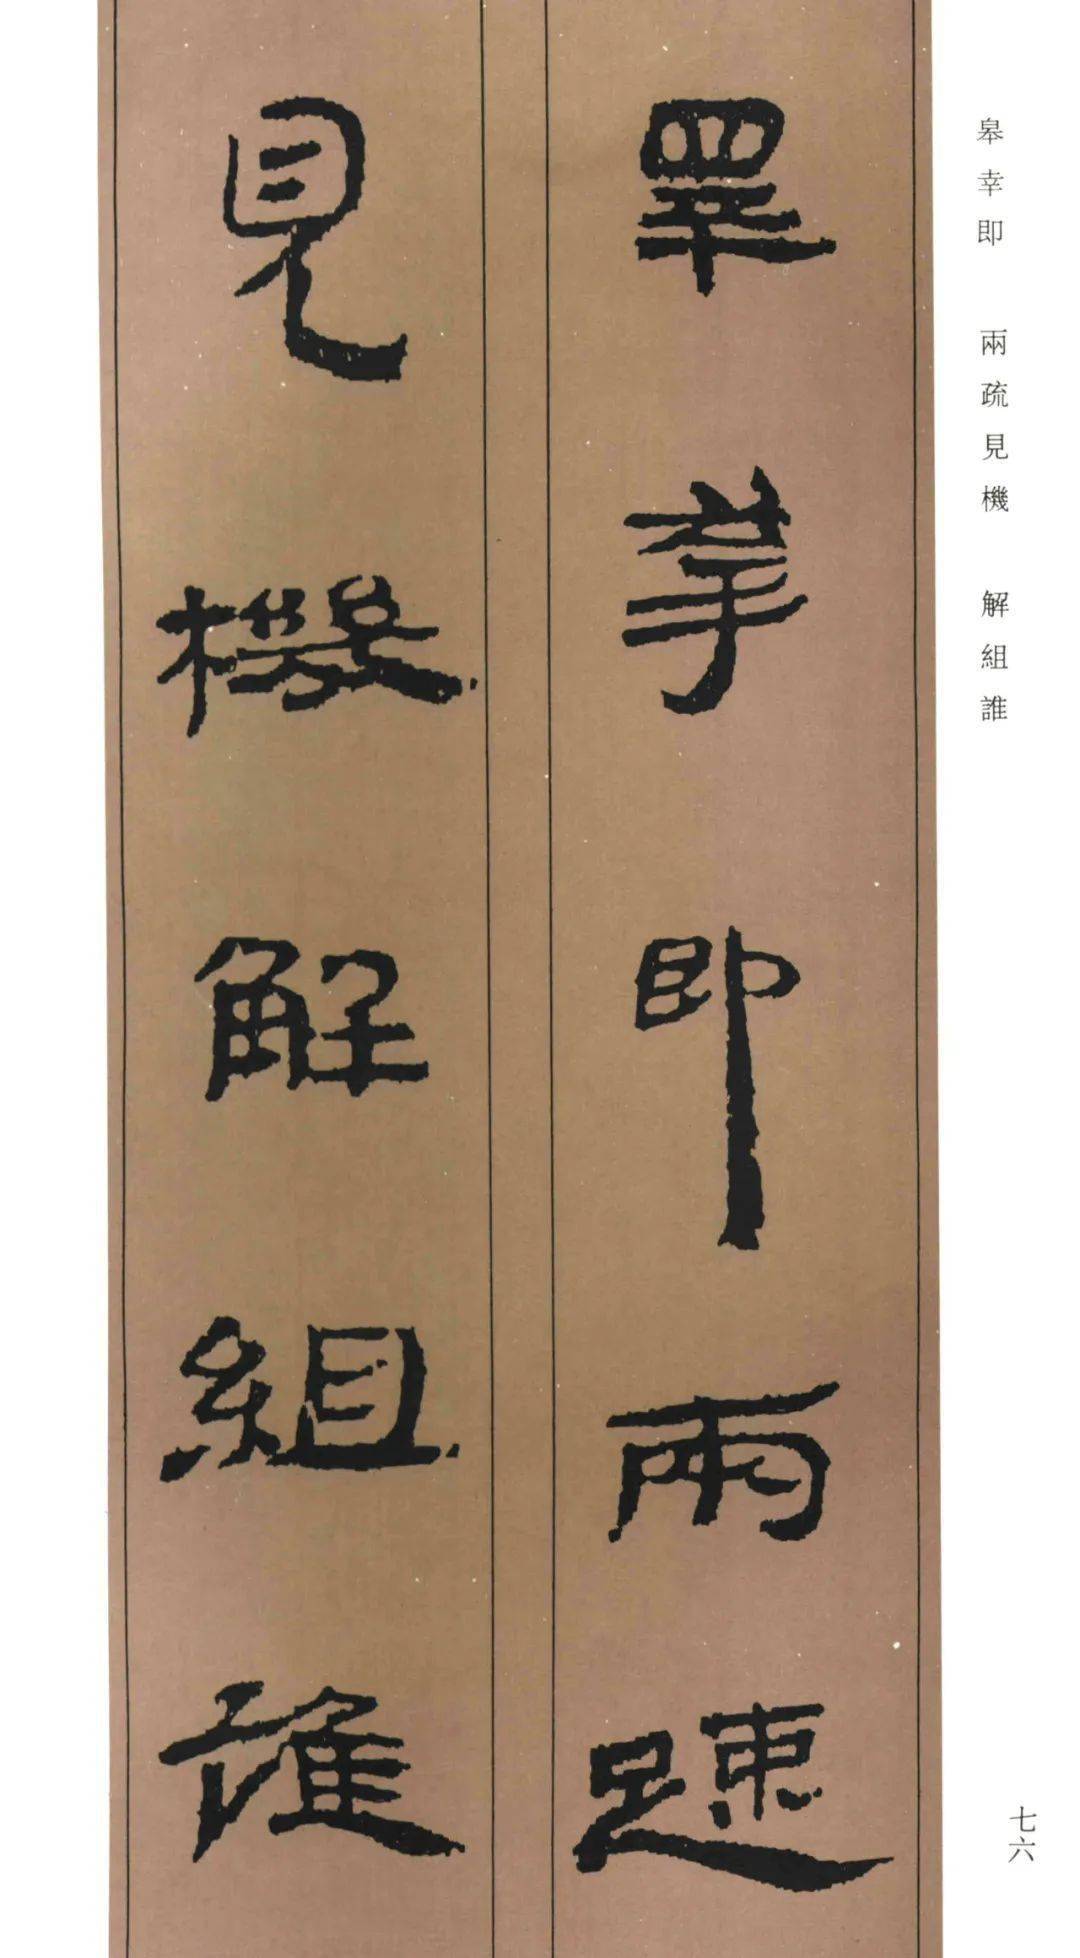 皋幸即 兩疏見機 解組誰
睪幸即兩疎
見機解組誰
七六